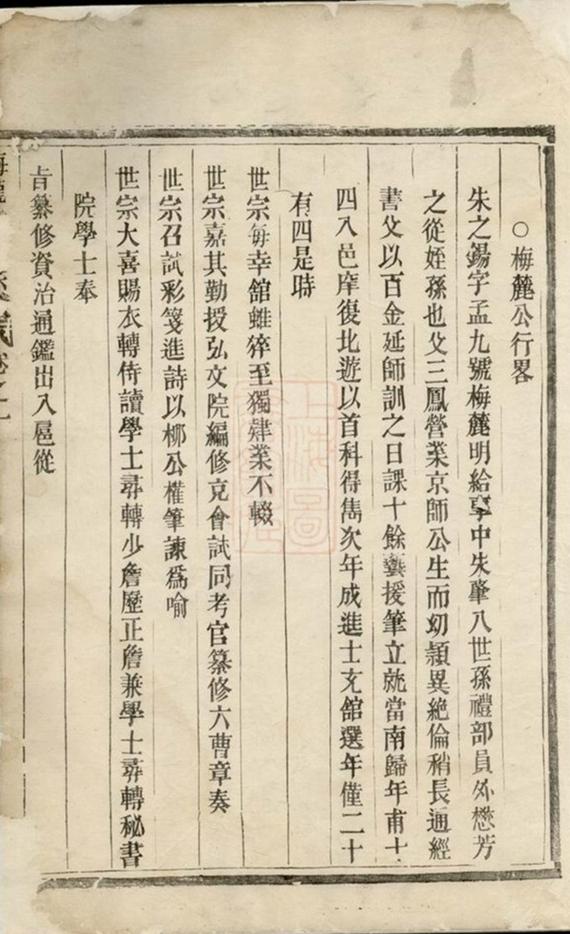 ○梅麓公行畧
朱之錫字孟九號梅麓明給事中朱肇八世孫禮部員外懋芳
之從姪孫也父三鳳營業京師公生而幼穎異絶倫稍長通經
書父以百金延師訓之日課十餘藝援筆立就當南歸年甫十
四入邑庠復北遊以首科得雋次年成進士充館選年僅二十
有四是時
世宗每幸館蜼猝至獨肄業不輟
世宗嘉其勤授弘文院編修充會試同考官纂修六曹章奏
世宗召試彩箋進詩以柳公權筆諫爲喻
世宗大喜賜衣轉侍讀學士尋轉少詹歷正詹兼學士尋轉秘書
院學士奉
旨纂修資治通鑑出入扈從